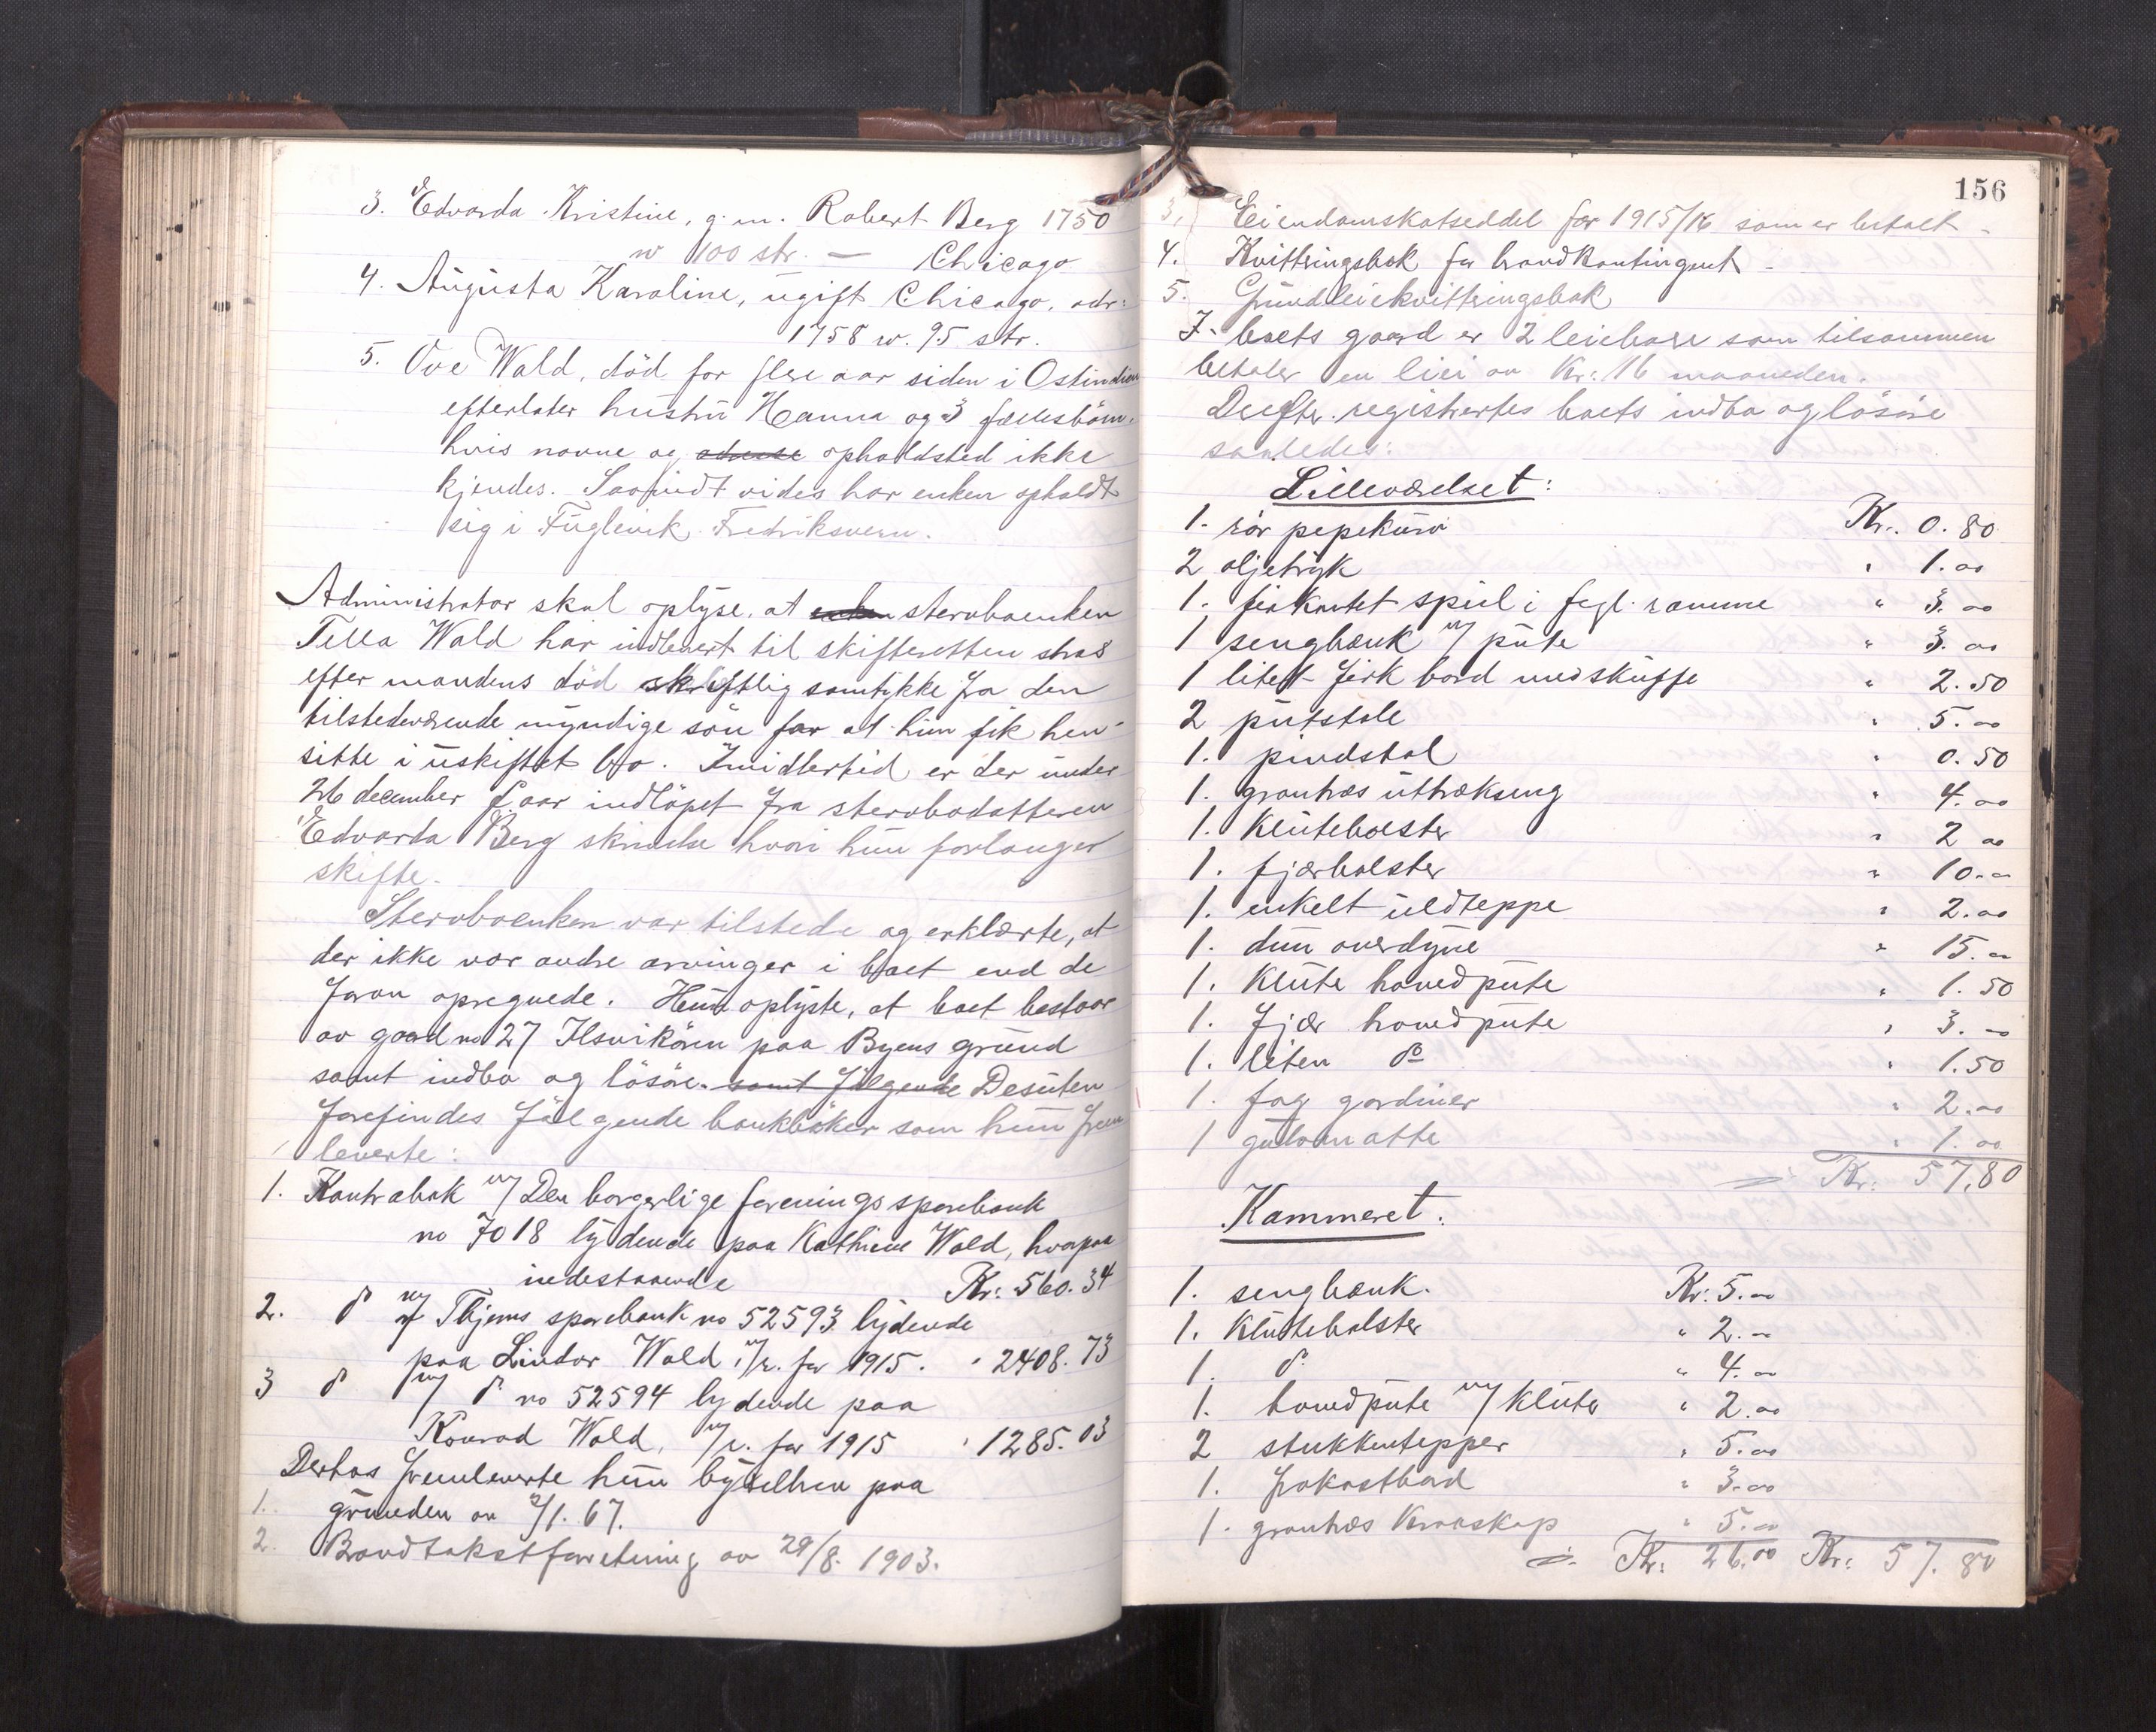 3. Edvarda Kristine, g. m. Robert Berg 1750
w 100 str. — Chicago
4. Augusta Karoline, ugift Chicago, adr:
1758 w. 95 str.
5. Ove Wald, död for flere aar siden i Ostindien
efterlater hustru Hanna og 3 fællesbörn.
hvis navne og adresse opholdsted ikke
kjendes. Saavidt vides har enken opholdt
sig i Fuglevik Fredriksvern.
Administrator skal oplyse, at enken stervboenken
Tella Wald har indlevert til skifteretten straks
efter mandens död skriftlig samtykke fra den
tilstedeværende myndige sön for at hun fik hen-
sitte i uskiftet bo. Imidlertid er der under
26 december f. aar indlöpet fra stervbodatteren
Edvarda Berg skrivelse hvori hun forlanger
skifte.
Stervboenken var tilstede og erklærte, at
der ikke var andre arvinger i boet end de
foran opregnede. Hun oplyste, at boet bestaar
av gaard no 27 Ilsvikören paa Byens grund
samt indbo og lösöre. samt fölgende Desuten
forefindes fölgende bankböker som hun frem
leverte:
1. Kontrabok m/ Den borgerlige forenings sparebank
no 7018 lydende paa Kathrine Wald, hvorpaa
indestaaende Kr: 560.34
2. do m/ Thjems sparebank no 52593 lydende
paa Lindor Wald, m/r. for 1915. " 2408.73
3 do m/ do no 52594 lydende paa
Konrad Wald, m/r. for 1915 " 1285.03
Derhos fremleverte hun bygselbrev paa
1. grunden av 2/1. 67.
2. Brandtakstforretning av 29/8. 1903.
156
3. Eiendomskatseddel for 1915/16 som er betalt -
4. Kvitteringsbok for brandkontingent -
5. Grundleiekvitteringsbok
I boets gaard er 2 leieboere som tilsammen
betaler en leie av Kr: 16 maaneden.
Derefter registrertes boets indbo og lösöre
saaledes:
Lilleværelset:
1. rör pepekurv Kr: 0.80
2 oljetryk " 1.00
1. firkantet speil i fegl. ramme " 3.00
1 sengbænk m/ pute " 3.00
1 litet firk bord med skuffe " 2.50
2 putstole " 5.00
1. pindstol " 0.50
1. grantræs uttrækseng " 4.00
1. klutebolster " 2 00
1. fjærbolster " 10.00
1. enkelt uldteppe " 2.00
1. dun overdyne " 15.00
1. klute hovedpute " 1.50
1. fjær hovedpute " 3.00
1. liten do " 1.50
1. fag gardiner " 2.00
1 gulvmatte " 1.00
Kr: 57.80
Kammeret.
1. sengbænk. Kr: 5.00
1. klutebolster " 2.00
1. do " 4.00
1. hovedpute m/ kluter " 2.00
2 stukkentepper " 5.00
1. frokostbord " 3.00
1. grantræs kroaskap " 5.00
Kr: 26.00 Kr: 57.80